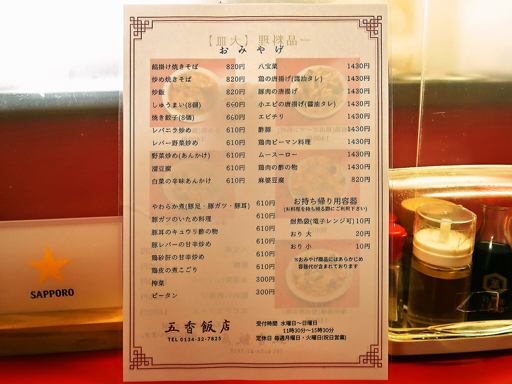 おみやげ
餡掛け焼きそば 820円
炒め焼きそば 820円
炒飯 820円
しゅうまい(8個) 660円
焼き餃子(8個) 660円
レバニラ炒め 610円
レバー野菜炒め 610円
野菜炒め(あんかけ) 610円
溜豆腐 610円
白菜の辛味あんかけ 610円
やわらか煮(豚足・豚ガツ・豚耳) 610円
豚ガツのいため料理 610円
豚耳のキュウリ酢の物 610円
豚レバーの甘辛炒め 610円
鶏砂肝の甘辛炒め 610円
鶏皮の煮こごり 610円
搾菜 300円
ピータン 300円
八宝菜 1430円
鶏の唐揚げ(醤油タレ) 1430円
豚肉の唐揚げ 1430円
小エビの唐揚げ(醤油タレ) 1430円
エビチリ 1430円
酢豚 1430円
鶏肉ピーマン料理 1430円
ムースーロー 1430円
鶏肉の酢の物 1430円
麻婆豆腐 820円
お持ち帰り用容器
(お料理を持ち帰る際にご利用下さい)
耐熱袋(電子レンジ可) 10円
おり 大 20円
おり 小 10円
※おみやげ商品にはあらかじめ
容器代が含まれております
五香飯店
TEL 0134-32-7825
受付時間 水曜日〜日曜日
11時30分〜15時30分
定休日 毎週月曜日・火曜日(祝日営業)
SAPPORO